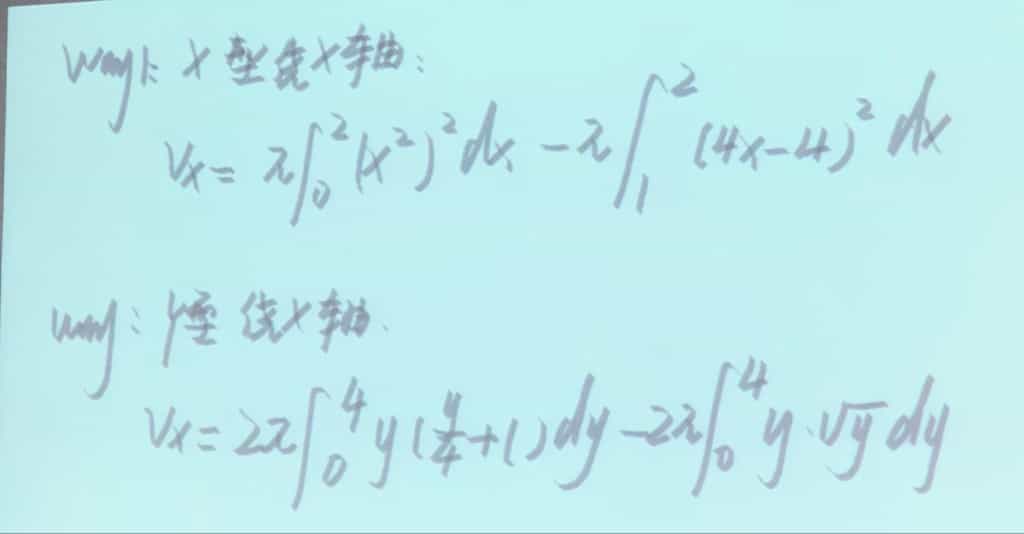 way1: X型绕X轴:
Vx = π∫₀²(x²)²dx - π∫₁²(4x-4)²dx
way: Y型绕X轴.
Vx = 2π∫₀⁴ y(y/4+1)dy - 2π∫₀⁴ y·√y dy